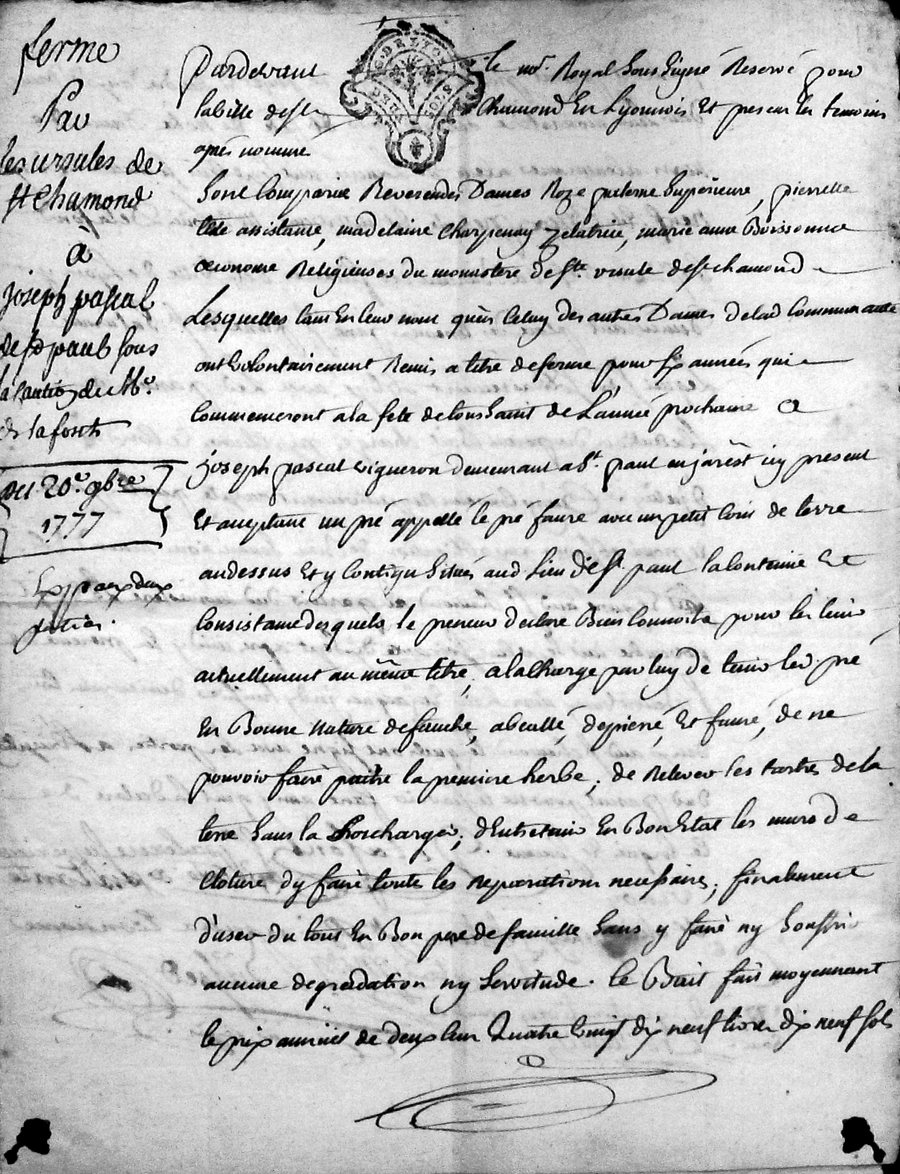 ferme
Par
les ursules de
St Chamond
à
joseph pascal
de St paul sous
la caution de Mr.
de la forest
Du 20e. 9bre
1777
Exp. aux deux
parties.
G. DE LYON
DEUX SOLS
Pardevant le nore. Royal Soussigné Reservé pour
la ville de St Chamond En Lyonnois Et presens les temoins
après nommés
Sont Comparues Reverendes Dames Roze paterne Superieure, pierrette
assistante, madelaine Charpenay Zelatrice, marie anne Boissonna
œconome Religieuses du monastere de Ste ursule de St chamond
Lesquelles tant En leur nom qu'en Celuy des autres Dames de lad Communauté
ont volontairement Remis a titre de ferme pour Six années qui
Commenceront a la fete de toussaint de L'année prochaine a
joseph pascal vigneron demeurant a St. paul en jarêst icy present
Et acceptant un pré appellé le pré faure avec un petit coin de terre
au dessus Et y Contigu Situés aud Lieu de St. paul la Contenue Et
Consistance desquels le preneur declare Bien Connoitre pour les tenir
actuellement au même titre, a la charge par luy de tenir led pré
En Bonne nature de fauche, abeallé, depierré, Et fumé, de ne
pouvoir faire paitre la premiere herbe; de Relever les tertres de la
terre Sans la Soscharger; d'Entretenir En Bon Etat les murs de
Cloture d'y faire toute les reparations necessaires; finalement
d'user du tout En Bon pere de famille Sans y faire ny Souffrir
aucune degradation ny Servitude. le Bail fait moyennant
le prix annuel de deux Cent Quatre vingt dix neuf livres dix neuf sols